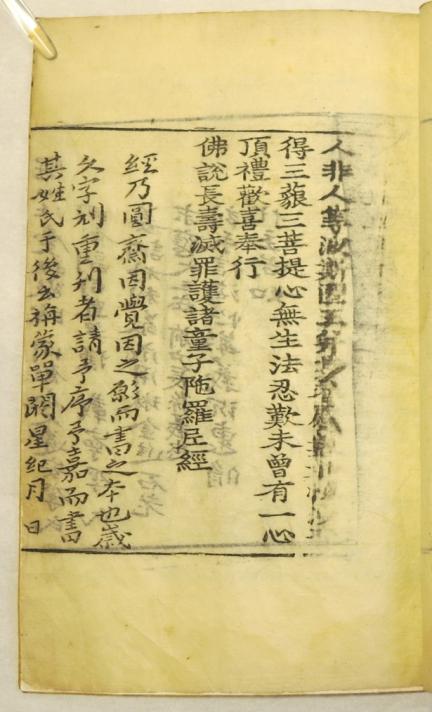 人非人等波斯匿王
得三藐三菩提心無生法忍歎未曾有一心
頂禮歡喜奉行
佛說長壽滅罪護諸童子陁羅尼經
經乃圓齋因覺因之願而書之本也歲
久字刓重刊者請予序予嘉而書
其姓氏于後云旃蒙單閼星紀月 日